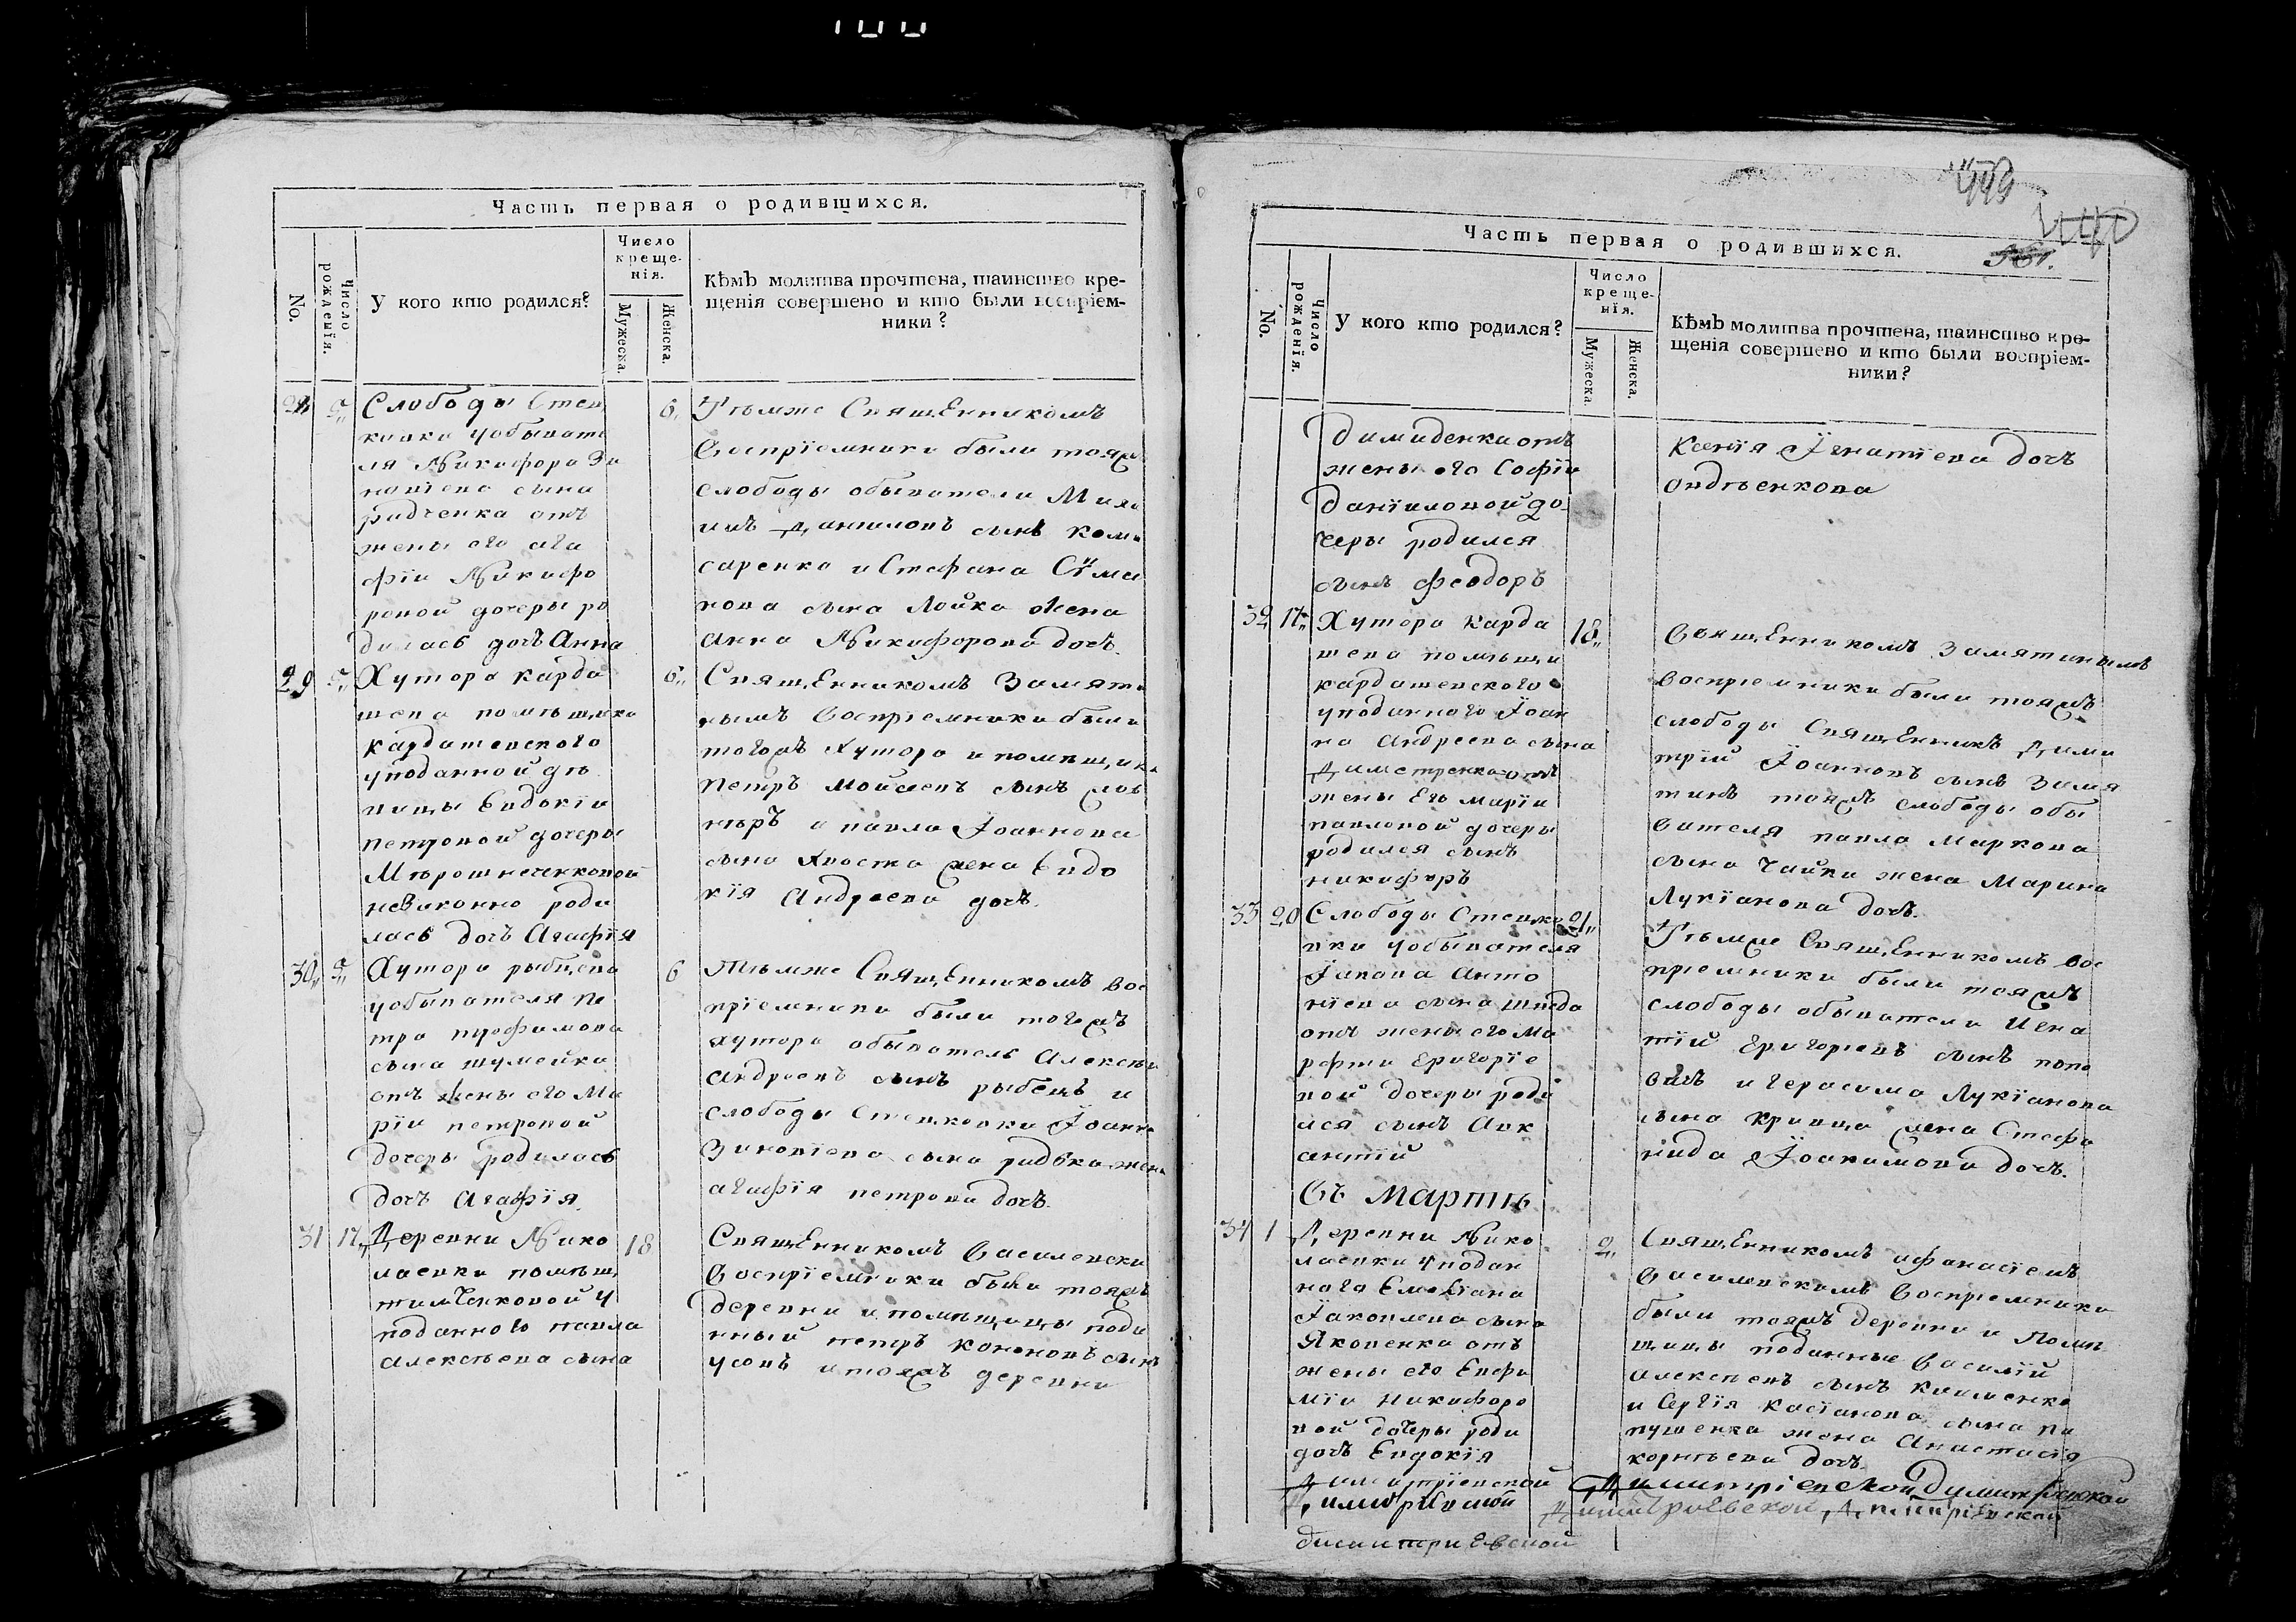 Часть первая о родившихся.
No.
Число рожденія.
У кого кто родился?
Число креще-
нія.
Мужеска.
Женска.
Кѣмъ молитва прочтена, таинство кре-
щенія совершено и кто были воспріем-
ники?
5 Слободы Степ
ковки у обывате
ля Никифора Зи
новіева сына
Радченка отъ
жены его Ага
фіи Никифо
ровой дочеры ро
дилась дочъ Анна
6 Тѣмже Священникомъ
Воспріемники были тояжъ
слободы обыватели
Даниловъ сынъ Коми
саренко и Стефана
сына Лойка жена
Анна Никифорова дочъ.
29 5 Хутора Карда
шева помѣщика
Кардашевского
у поданной дѣ
вицы Евдокіи
Петровой дочеры
Мѣрошнеченковой
незаконно роди
лась дочъ Агафія
6 Священникомъ Замяти
нымъ Воспріемники были
тогожъ Хутора и помѣщика
Петръ Мойсеевъ сынъ
и Павла Іоаннова
сына Хвоста жена Евдо
кія Андреева дочъ.
30 5 Хутора Рыбцева
у обывателя Пе
тра Трофимова
сына Шумейка
отъ жены его Ма
ріи Петровой
дочеры родилась
дочъ Агафія.
6 Тѣмже Священникомъ Вос
пріемники были тогожъ
хутора обыватель Алексѣй
Андреевъ сынъ Рыбецъ и
слободы Степковки Іоанна
Зиновіева сына Радька жена
Агафія Петрова дочъ.
31 17 Деревни Нико
лаевки помѣщ.
Тимченковой у
поданного Павла
Алексѣева сына
18 Священникомъ Василевски
Воспріемники были тояжъ
деревни и помѣщицы пода
нный Петръ Кононовъ сынъ
Усовъ и тояжъ деревни
449
440
Часть первая о родившихся.
No.
Число рожденія.
У кого кто родился?
Число креще-
нія.
Мужеска.
Женска.
Кѣмъ молитва прочтена, таинство кре-
щенія совершено и кто были воспріем-
ники?
Димиденки отъ
жены его Софіи
Даніиловой до
черы родился
сынъ Феодоръ
Ксенія Игнатіева дочъ
Овдѣенкова
32 17 Хутора Карда
шева помѣщи
Кардашевского
у поданного Іоан
на Андреева сына
Диметренка отъ
жены Его Маріи
Павловой дочеры
родился сынъ
Никифоръ
18 Священникомъ Замятинымъ
Воспріемники были тояжъ
слободы Священникъ Дими
трій Іоанновъ сынъ Замя
тинъ тояжъ слободы обы
вателя Павла Маркова
сына Чайки жена Марина
Лукіанова дочъ.
33 20 Слободы Степко
вки у обывателя
Іакова Анто
ніева сына Шведа
отъ жены его Ма
рфы Григоріе
вой дочеры роди
лся сынъ Авк
сентій
21 Тѣмже Священникомъ Вос
пріемники были тояжъ
слободы обыватели Игна
тій Григоріевъ сынъ Попо
вичъ и Герасима Лукіанова
сына Кривца жена Стефа
нида Іоакимова дочъ.
Въ Мартѣ
34 1 Деревни Нико
лаевки у подан
наго Емеліана
Іаковлева сына
Яковенка отъ
жены его Евфи
міи Никифоро
вой дочеры роди
дочъ Евдокія
2 Священникомъ Афанасіемъ
Василевскимъ Воспріемники
были тояжъ деревни и Помѣ
щицы поданные Василій
Алексѣевъ сынъ Клименко
и Сергія Касіанова сына Па
жена Анастасія
Корнѣева дочъ.
Димитріевской
Димитріевской
Димитріевской
Димитріевской
Димитриевской
Димитріевской
димитриевской